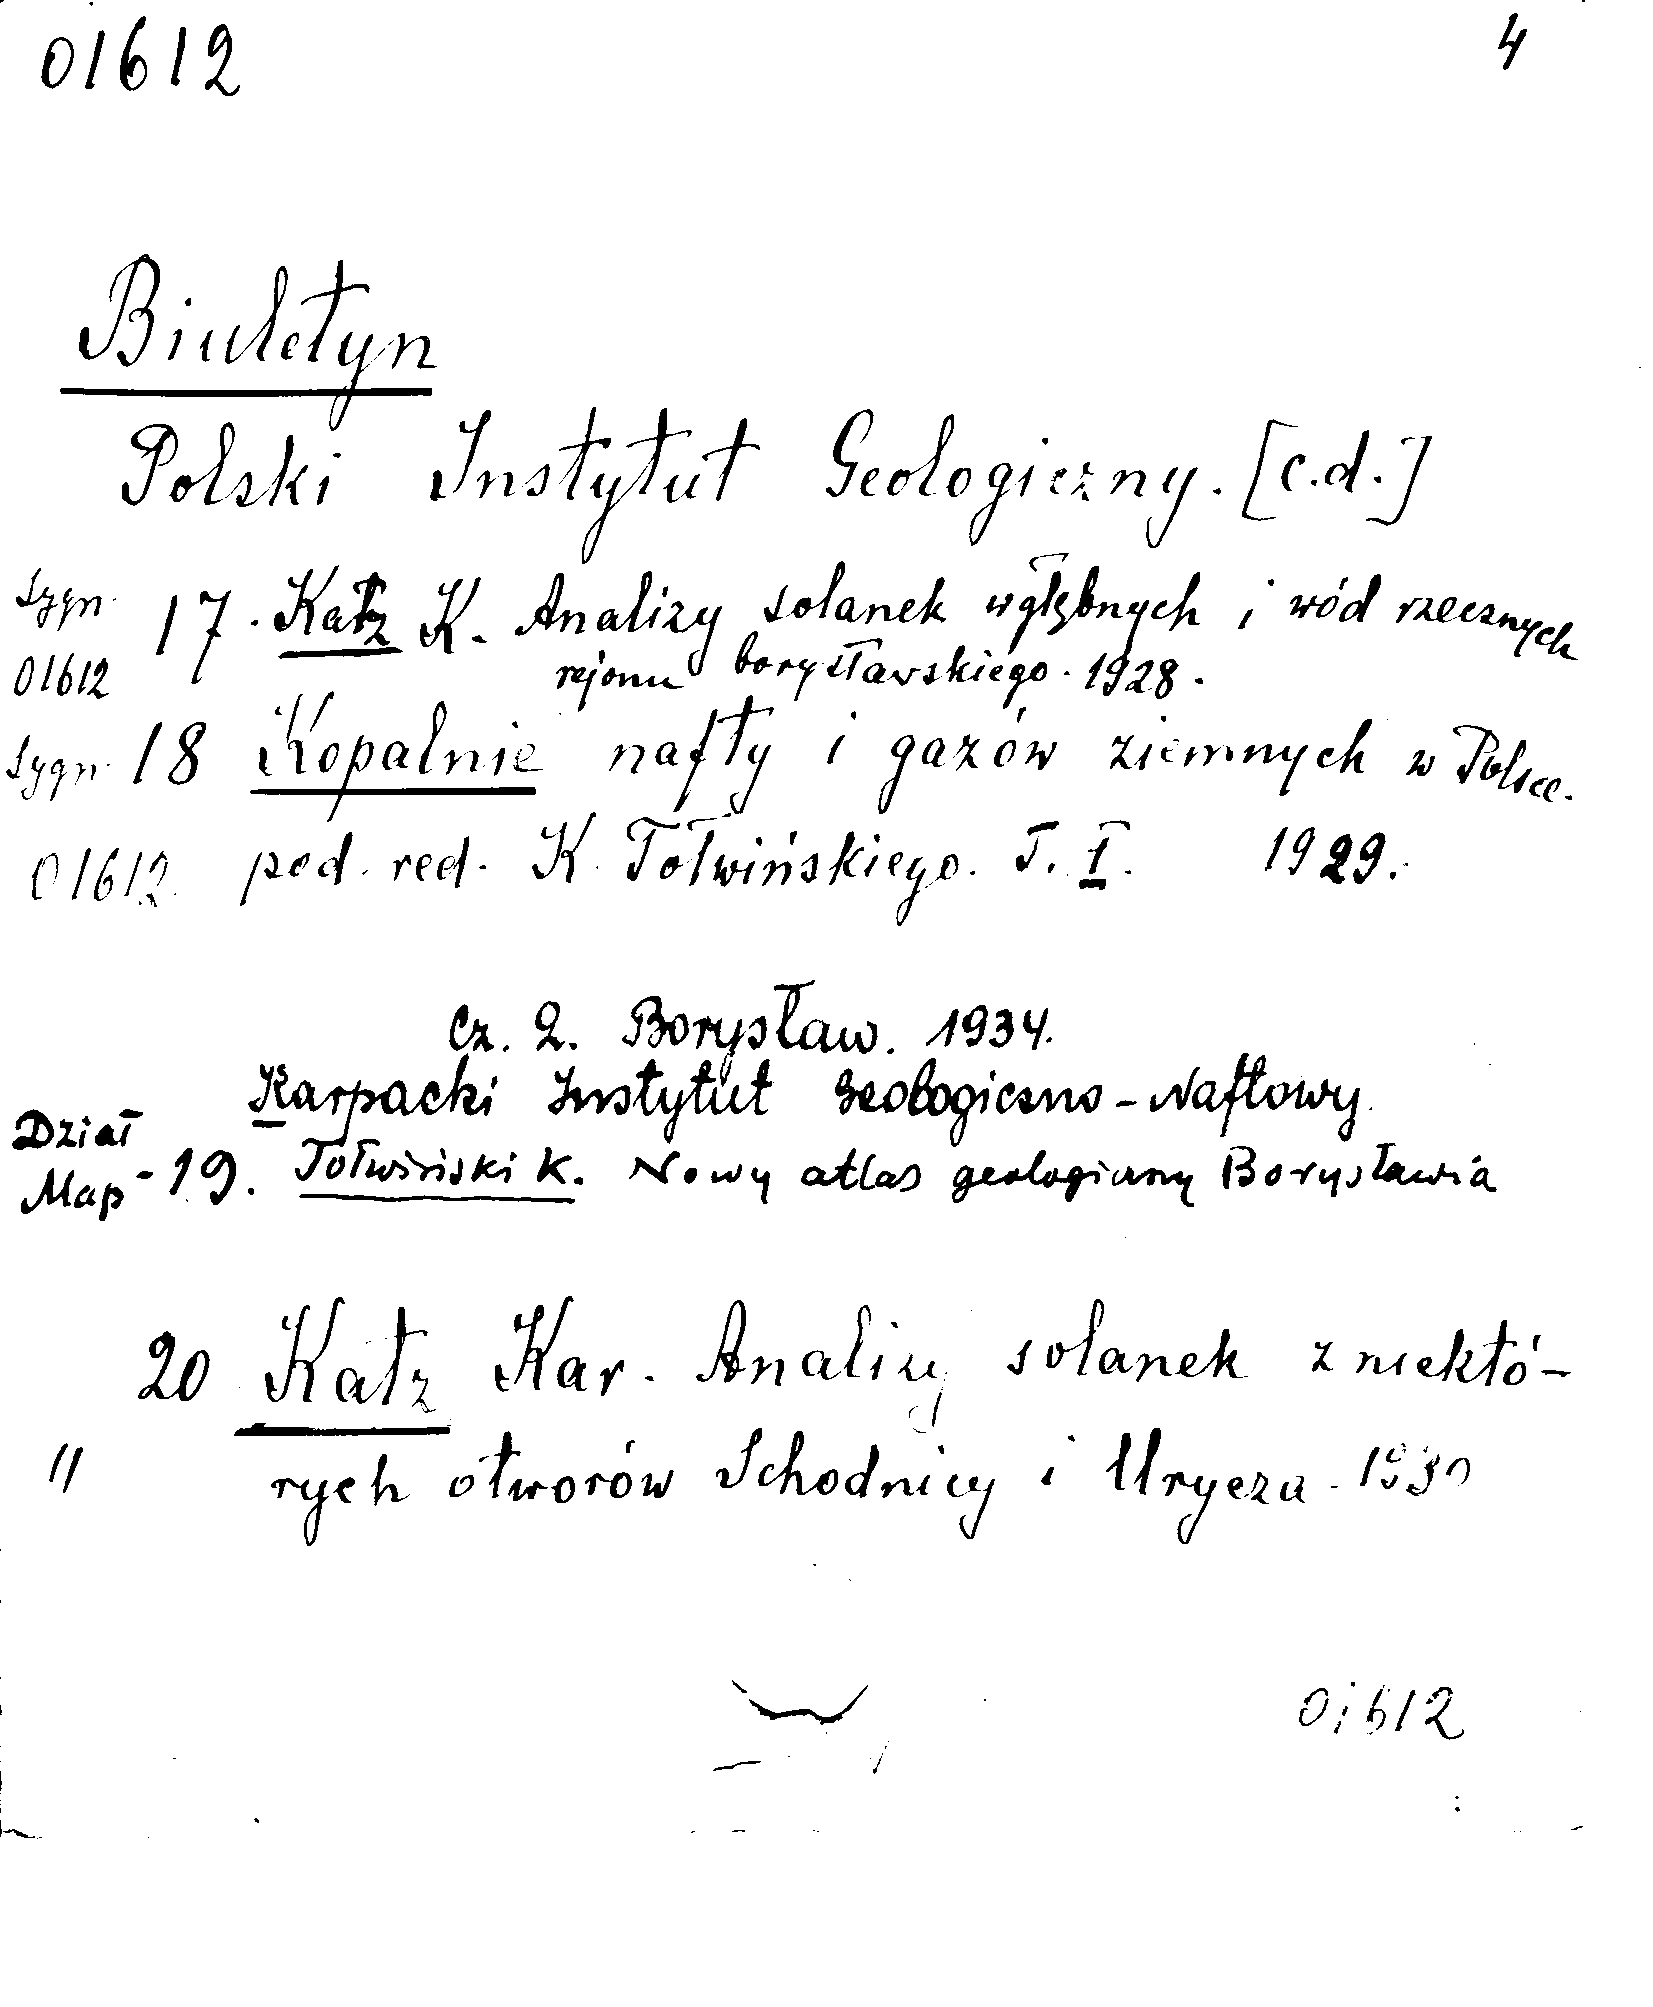 01612 4
Biuletyn
Polski Instytut Geologiczny. [c.d.]
Sygn. 17. Katz K. Analizy solanek wgłębnych i wód rzecznych
01612 rejonu borysławskiego. 1928.
Sygn. 18 Kopalnie nafty i gazów ziemnych w Polsce.
01612 pod. red. K. Tołwińskiego. T. I. 1929.
Cz. 2. Borysław. 1934.
Karpacki Instytut Geologiczno-Naftowy.
Dział
Map - 19. Tołwiński K. Nowy atlas geologiczny Borysławia
20 Katz Kar. Analizy solanek z niektó-
" rych otworów Schodnicy i Urycza. 1930
01612